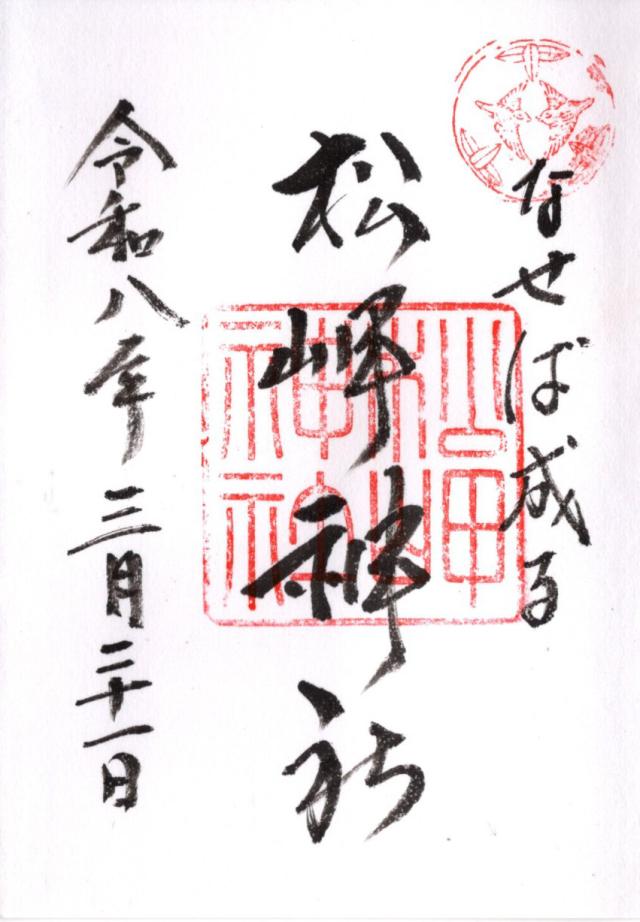 なせば成る
松岬神社
令和八年三月二十一日
松岬神社